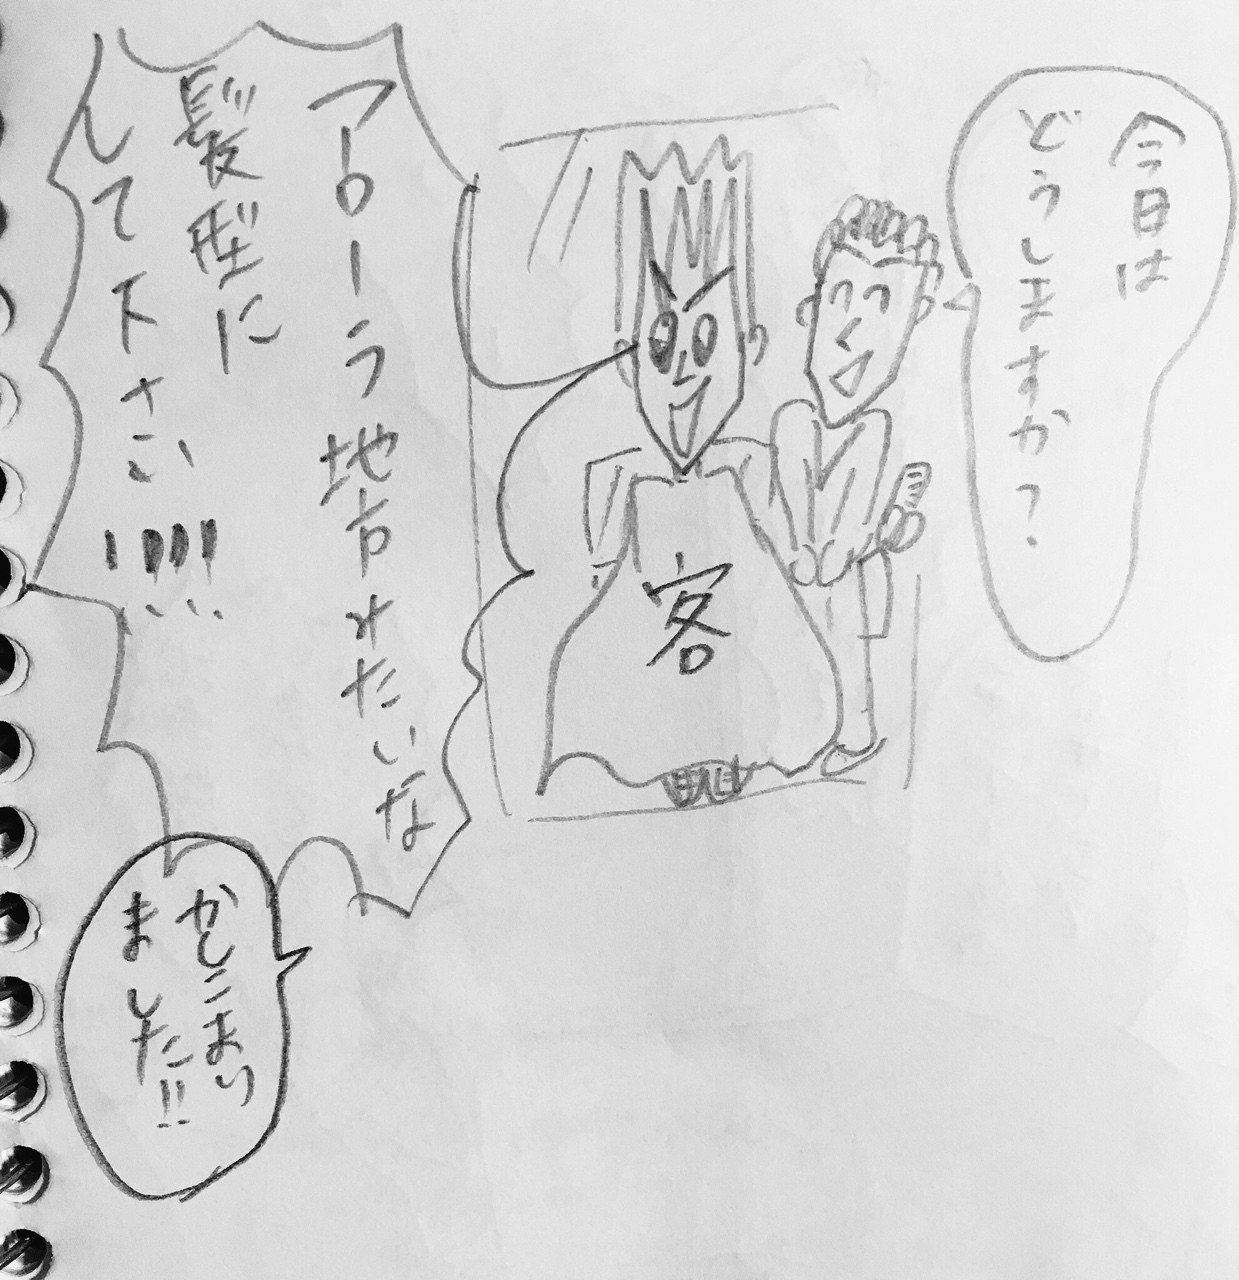 今日は
どうしますか？
アローラ地方みたいな
髪型に
して下さい!!!!
客
かしこまり
ました!!